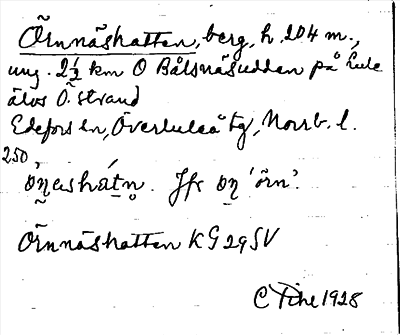 Örnnäshatten, berg, h. 204 m.,
ung. 2½ km O Bålsnäsudden på Lule
älvs Ö. strand
Edefors sn, Överluleå tg, Norrb. l.
250
Jfr 'örn'.
Örnnäshatten KG 29 SV
1928